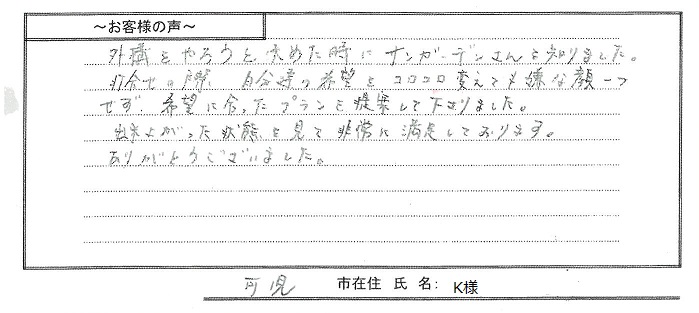 ～お客様の声～
外構をやろうと決めた時にサンガーデンさんを知りました。
打合せの際、自分達の希望をコロコロ変えても嫌な顔一つ
せず、希望に合ったプランを提案して下さりました。
出来上がった状態を見て非常に満足しております。
ありがとうございました。
可児 市在住 氏 名: K様